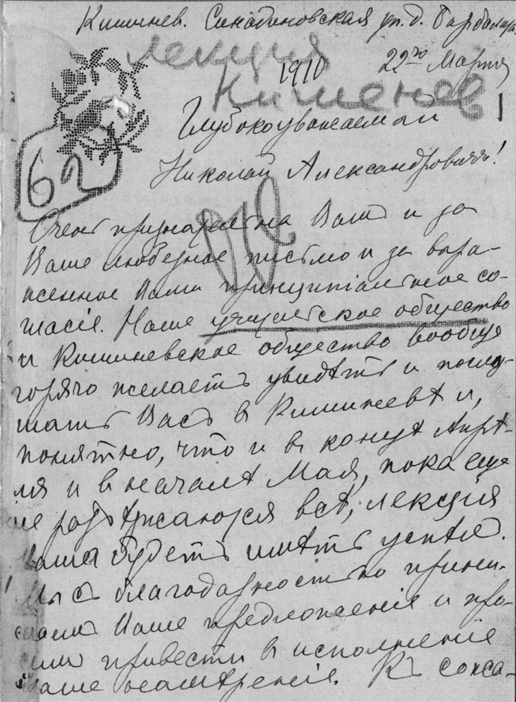 Кишинев. Синадиновская ул. д. Барбалат
лекция
1910 22го Марта
Кишенев
62
Глубокоуважаемый
Николай Александровичъ!
Очень признательна Вамъ и за
Ваше любезное письмо и за выра-
женное Вами принципіальное со-
гласіе. Наше учительское общество
и Кишиневское общество вообще
горячо желаетъ увидѣть и послу-
шать Васъ в Кишиневѣ и,
понятно, что и в концѣ Апрѣ-
ля и в началѣ Мая, пока еще
не разъѣзжаются всѣ, лекция
Ваша будетъ имѣть успехъ.
Мы с благодарностью прини-
маемъ Ваше предложеніе и про-
симъ привести в исполненіе
Ваше намѣреніе. Къ сожа-